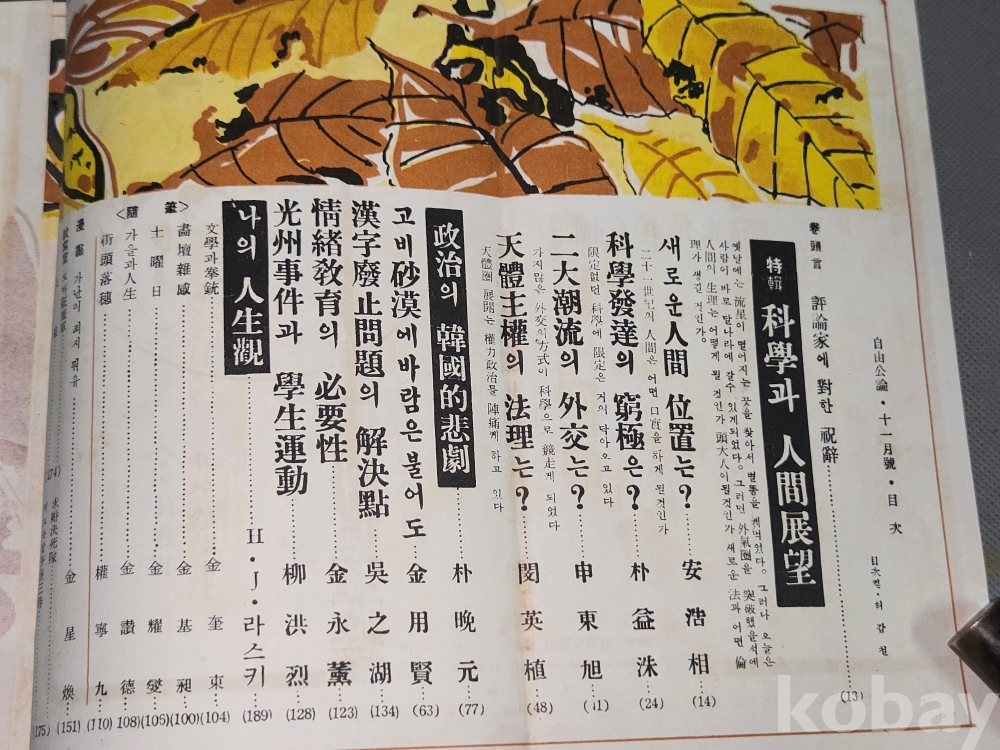 自由公論・十一月號・目次
目次컽・허갑철
卷頭言 評論家에 對한 祝辭 (13)
特輯 科學과 人間展望
옛날에는 流星이 떨어지는 곳을 찾아서 별똥을 캐먹었다. 그러나 오늘은
사람이 바로 달나라에 갈수 있게되었다. 그러면 外氣圈을 突破했을적에
人間의 生理는 어떻게 될 것인가 頭大人이될것인가 새로운 法과 어떤 倫
理가 생길 것인가.
새로운人間 位置는? 安浩相 (14)
二十一世紀의 人間은 어떤 口實을 하게 될것인가
科學發達의 窮極은? 朴益洙 (24)
限定없던 科學에 限定은 거의 닥아오고 있다
二大潮流의 外交는? 申東旭 (41)
가지많은 外交의方式이 科學으로 競走케 되었다
天體主權의 法理는? 閔英植 (48)
天體圈 展開는 權力政治를 陣痛케 하고 있다
政治의 韓國的悲劇 朴晩元 (77)
고비砂漠에바람은불어도 金用賢 (63)
漢字廢止問題의 解決點 吳之湖 (134)
情緖敎育의 必要性 金永薰 (123)
光州事件과 學生運動 柳洪烈 (128)
나의 人生觀 H・J・라스키 (189)
文學과拳銃 金奎東 (104)
畵壇雜感 金基昶 (100)
土曜日 金耀燮 (106)
<隨筆> 가을과人生 金讚德 (108)
街頭落穗 權寧九 (110)
漫畵 가난이 죄지 뭐유 金星煥 (151)
(174)
求婚決死隊
(175)
kobay